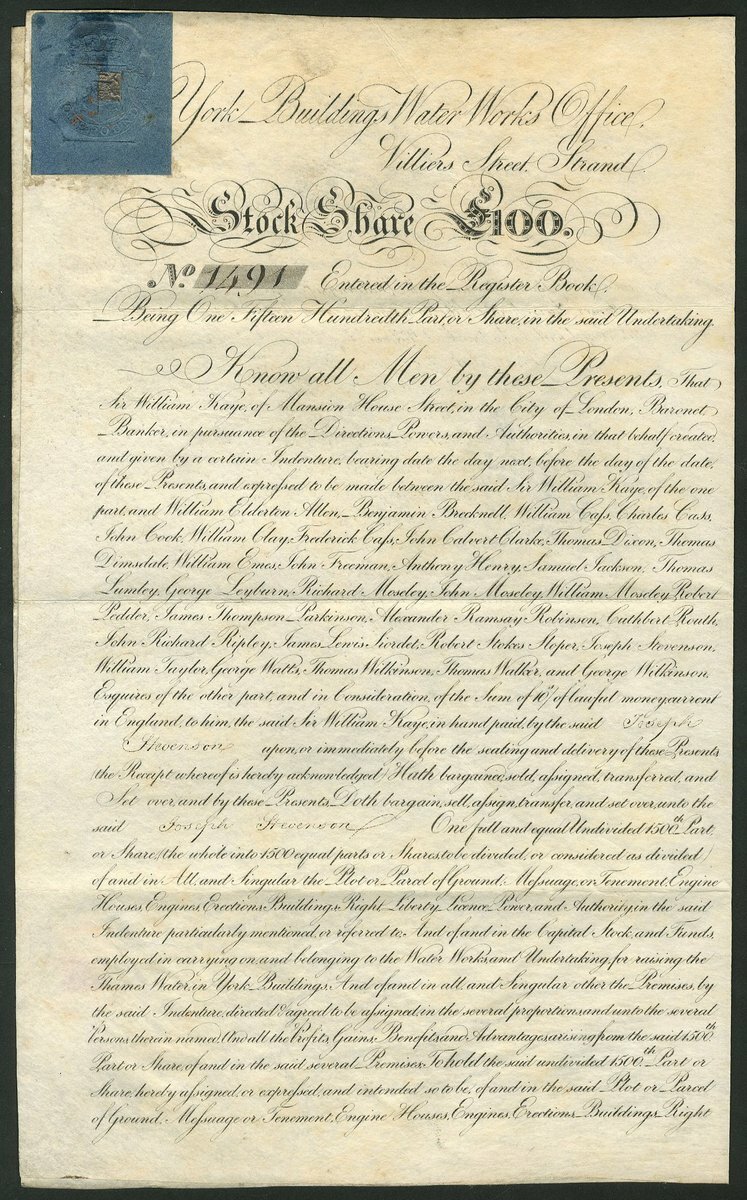 York Buildings Water Works Office,
Villiers Street, Strand.
Stock Share £100.
No. 1491 Entered in the Register Book.
Being One Fifteen Hundredth Part, or Share, in the said Undertaking.
Know all Men by these Presents, That
Sir William Kaye, of Mansion House Street, in the City of London, Baronet
Banker, in pursuance of the Directions, Powers, and Authorities, in that behalf created,
and given by a certain Indenture, bearing date the day next, before the day of the date,
of these Presents, and expressed to be made between the said Sir William Kaye, of the one
part, and William Elderton Allen, Benjamin Brecknell, William Cass, Charles Cass,
John Cook, William Clay, Frederick Cass, John Calvert Clarke, Thomas Dixon, Thomas
Dimsdale, William Emes, John Freeman, Anthony Henry, Samuel Jackson, Thomas
Lumley, George Leyburn, Richard Moseley, John Moseley, William Moseley, Robert
Pedder, James Thompson Parkinson, Alexander Ramsay Robinson, Cuthbert Routh,
John Richard Ripley, James Lewis Siordet, Robert Stokes Sloper, Joseph Stevenson,
William Taylor, George Watts, Thomas Wilkinson, Thomas Walker, and George Wilkinson,
Esquires of the other part, and in Consideration, of the Sum of 10/ of lawful money current
in England, to him, the said Sir William Kaye, in hand paid, by the said Joseph
Stevenson upon, or immediately before the sealing and delivery of these Presents
the Receipt whereof is hereby acknowledged, Hath bargained, sold, assigned, transferred, and
Set over, and by these Presents, Doth bargain, sell, assign, transfer, and set over, unto the
said Joseph Stevenson One full and equal Undivided 1500th Part,
or Share, (the whole into 1500 equal parts or Shares, to be divided, or considered as divided)
of and in All, and Singular the Plot or Parcel of Ground, Messuage, or Tenement, Engine
Houses, Engines, Erections, Buildings, Right Liberty, Licence, Power, and Authority, in the said
Indenture particularly mentioned, or referred to, And of and in the Capital Stock, and Funds,
employed in carrying on, and belonging to the Water Works, and Undertaking, for raising the
Thames Water, in York Buildings, And of and in all and Singular other the Premises, by
the said Indenture, directed & agreed to be assigned, in the several proportions, and unto the several
Persons, therein named, And all the Profits, Gains, Benefits, and Advantages arising from the said 1500th
Part or Share, of and in the said several Premises. To hold the said undivided 1500th Part or
Share, hereby assigned, or expressed, and intended so to be, of and in the said Plot or Parcel
of Ground, Messuage or Tenement, Engine Houses, Engines, Erections, Buildings, Right